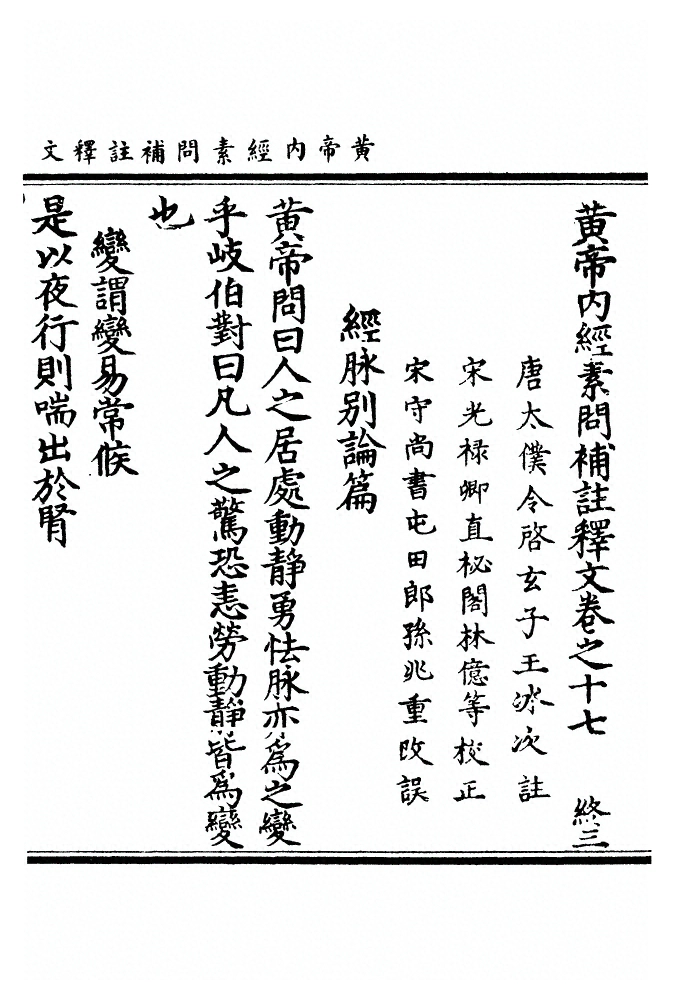 黄帝内經素問補註釋文
黄帝内經素問補註釋文卷之十七 終三
唐太僕令啓玄子王冰次註
宋光禄卿直秘閣林億等校正
宋守尚書屯田郎孫兆重改誤
經脉别論篇
黄帝問曰人之居處動靜勇怯脉亦爲之變
乎岐伯對曰凡人之驚恐恚勞動靜皆爲變
也
變謂變易常候
是以夜行則喘出於腎